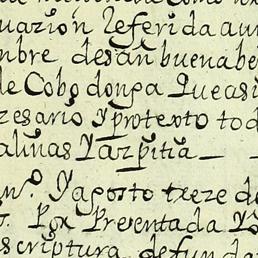 uazion Referida aun
nbre de san buena be
de Cobo donga Que asi
zesario y protexto tod
alinas y azpitia
no. y agosto treze de
Por Presentada
scriptura de fundaz